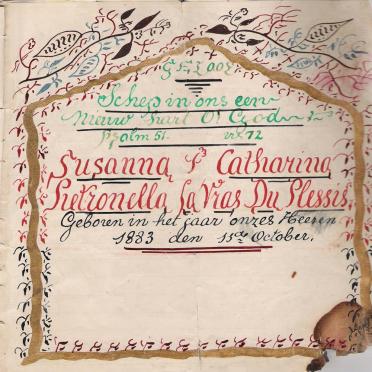 Schep in ons een
nieuw hart O God
Psalm 51 vs 12
Susanna Catharina
Pietronella La Vras Du Plessis
Geboren in het jaar onzes Heeren
1883 den 11de October.